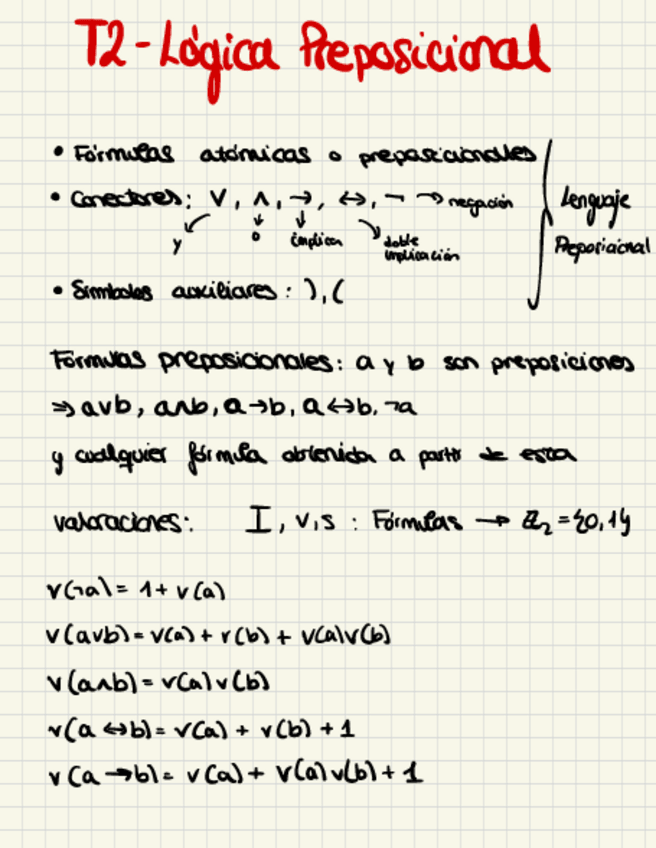 T2-Lógica Preposicional
• Fórmulas atómicas o preposicionales
• Conectores: ∨, ∧, →, ↔, ¬ → negación
y o implica doble implicación
Lenguaje
Preposicional
• Símbolos auxiliares: ),(
Fórmulas preposicionales: a y b son preposiciones
⇒ a∨b, a∧b, a→b, a↔b, ¬a
y cualquier fórmula obtenida a partir de esta
valoraciones: I, v, s : Fórmulas → ℤ₂ = {0,1}
v(¬a) = 1 + v(a)
v(a∨b) = v(a) + v(b) + v(a)v(b)
v(a∧b) = v(a)v(b)
v(a ↔ b) = v(a) + v(b) + 1
v(a → b) = v(a) + v(a)v(b) + 1